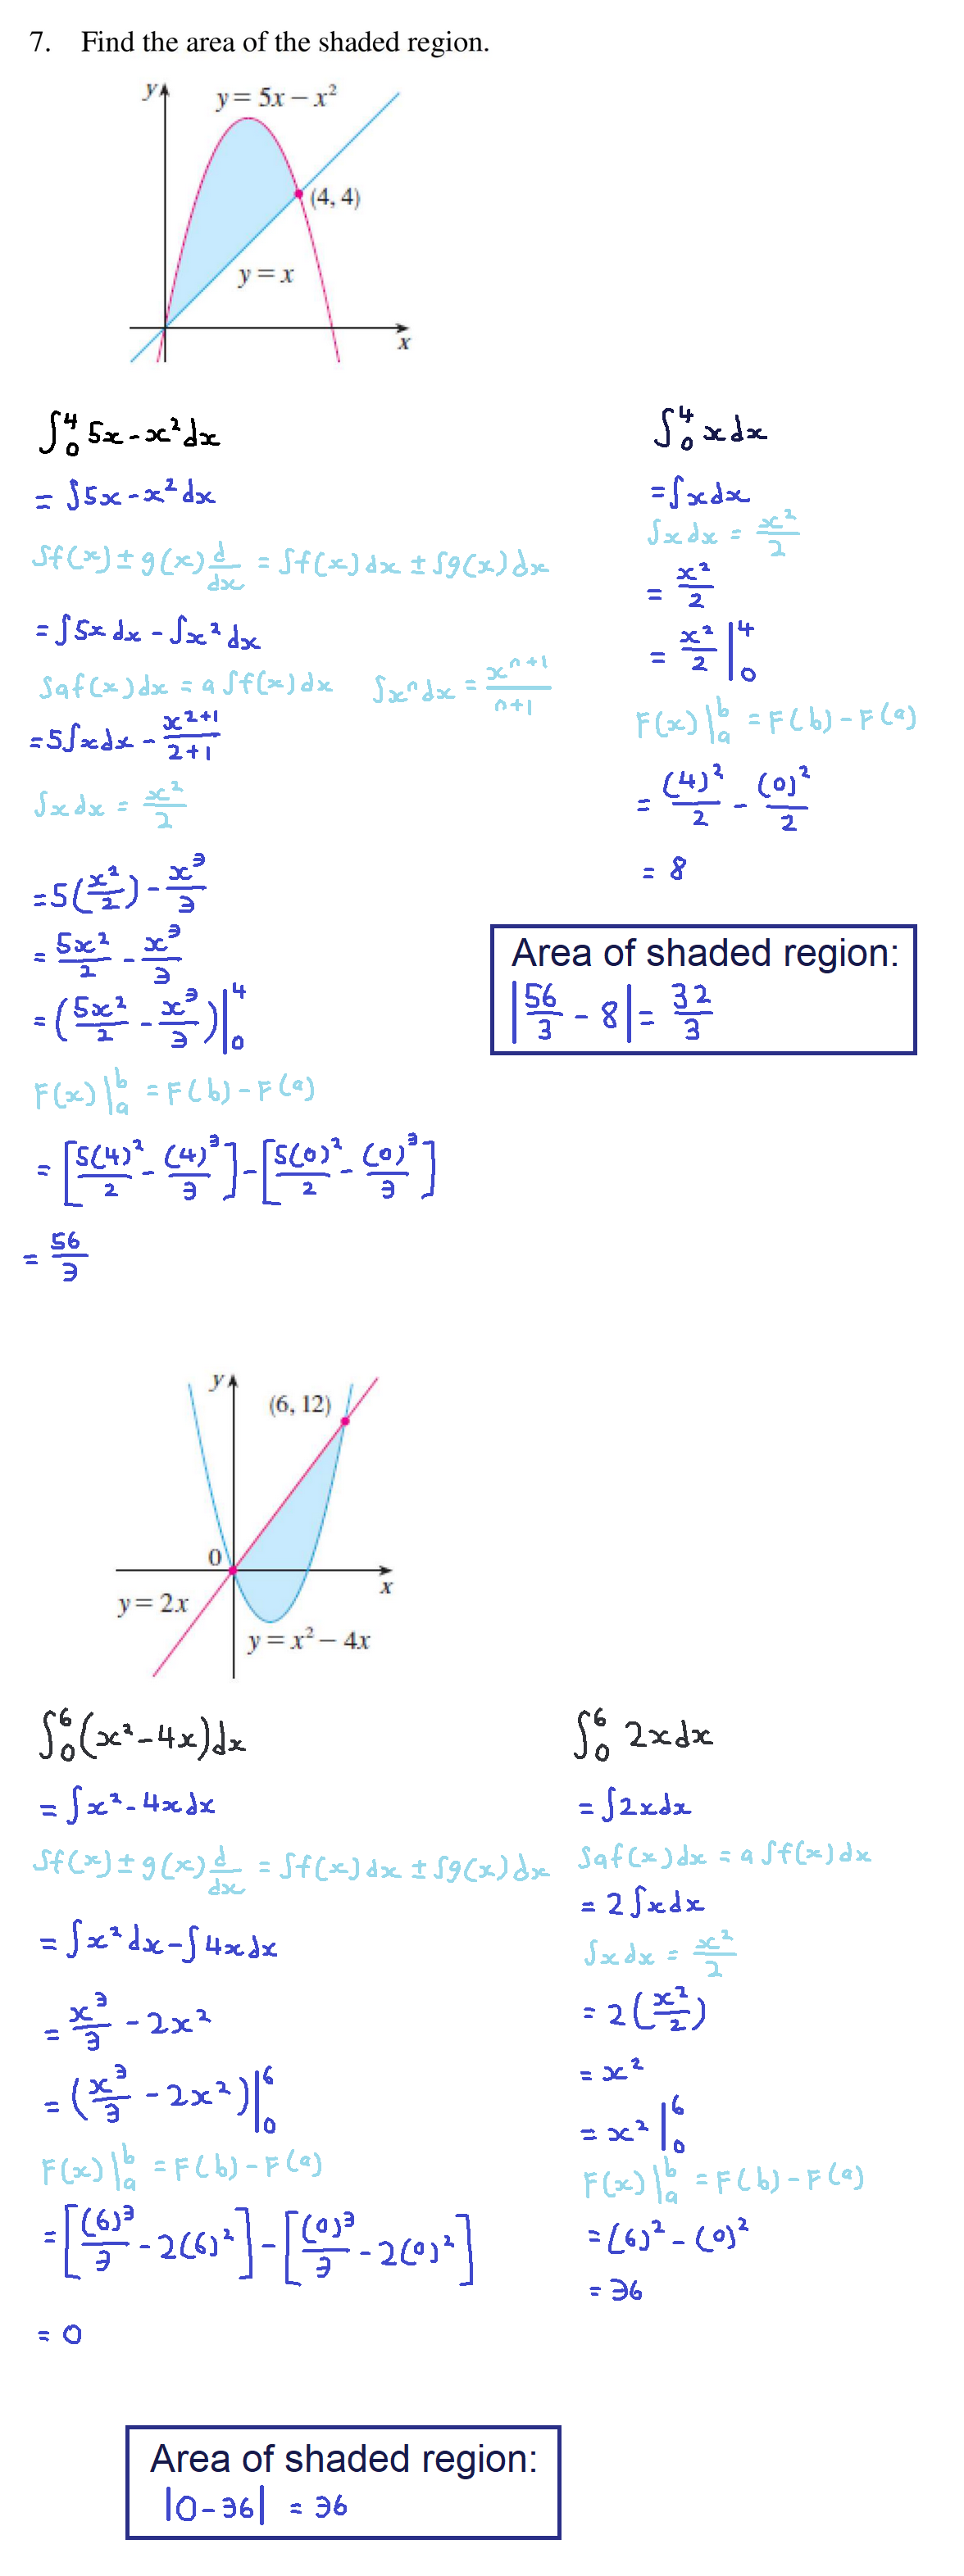 7. Find the area of the shaded region.
y
y = 5x − x²
(4, 4)
y = x
x
∫⁴₀ 5x - x² dx
= ∫5x - x² dx
∫f(x) ± g(x) d/dx = ∫f(x) dx ± ∫g(x) dx
= ∫5x dx - ∫x² dx
∫af(x)dx = a ∫f(x) dx ∫xⁿ dx = xⁿ⁺¹/n+1
= 5∫xdx - x²⁺¹/2+1
∫x dx = x²/2
= 5(x²/2) - x³/3
= 5x²/2 - x³/3
= (5x²/2 - x³/3)|⁴₀
F(x)|ᵇₐ = F(b) - F(a)
= [5(4)²/2 - (4)³/3] - [5(0)²/2 - (0)³/3]
= 56/3
∫⁴₀ x dx
= ∫x dx
∫x dx = x²/2
= x²/2
= x²/2 |⁴₀
F(x)|ᵇₐ = F(b) - F(a)
= (4)²/2 - (0)²/2
= 8
Area of shaded region:
|56/3 - 8| = 32/3
y
(6, 12)
0
x
y = 2x
y = x² − 4x
∫⁶₀ (x² - 4x) dx
= ∫x² - 4x dx
∫f(x) ± g(x) d/dx = ∫f(x) dx ± ∫g(x) dx
= ∫x² dx - ∫4x dx
= x³/3 - 2x²
= (x³/3 - 2x²)|⁶₀
F(x)|ᵇₐ = F(b) - F(a)
= [(6)³/3 - 2(6)²] - [(0)³/3 - 2(0)²]
= 0
∫⁶₀ 2x dx
= ∫2x dx
∫af(x)dx = a ∫f(x) dx
= 2∫x dx
∫x dx = x²/2
= 2(x²/2)
= x²
= x² |⁶₀
F(x)|ᵇₐ = F(b) - F(a)
= (6)² - (0)²
= 36
Area of shaded region:
|0 - 36| = 36